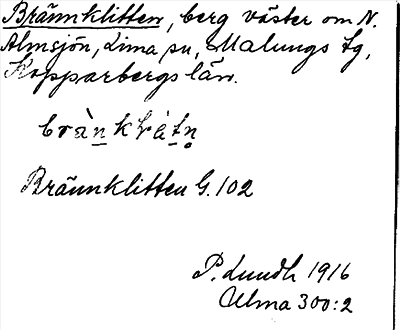 Brännklitten, berg väster om N.
Almsjön, Lima sn, Malungs tg,
Kopparbergs län.
Brännklitten G. 102
P. Lundh 1916
Ulma 300:2